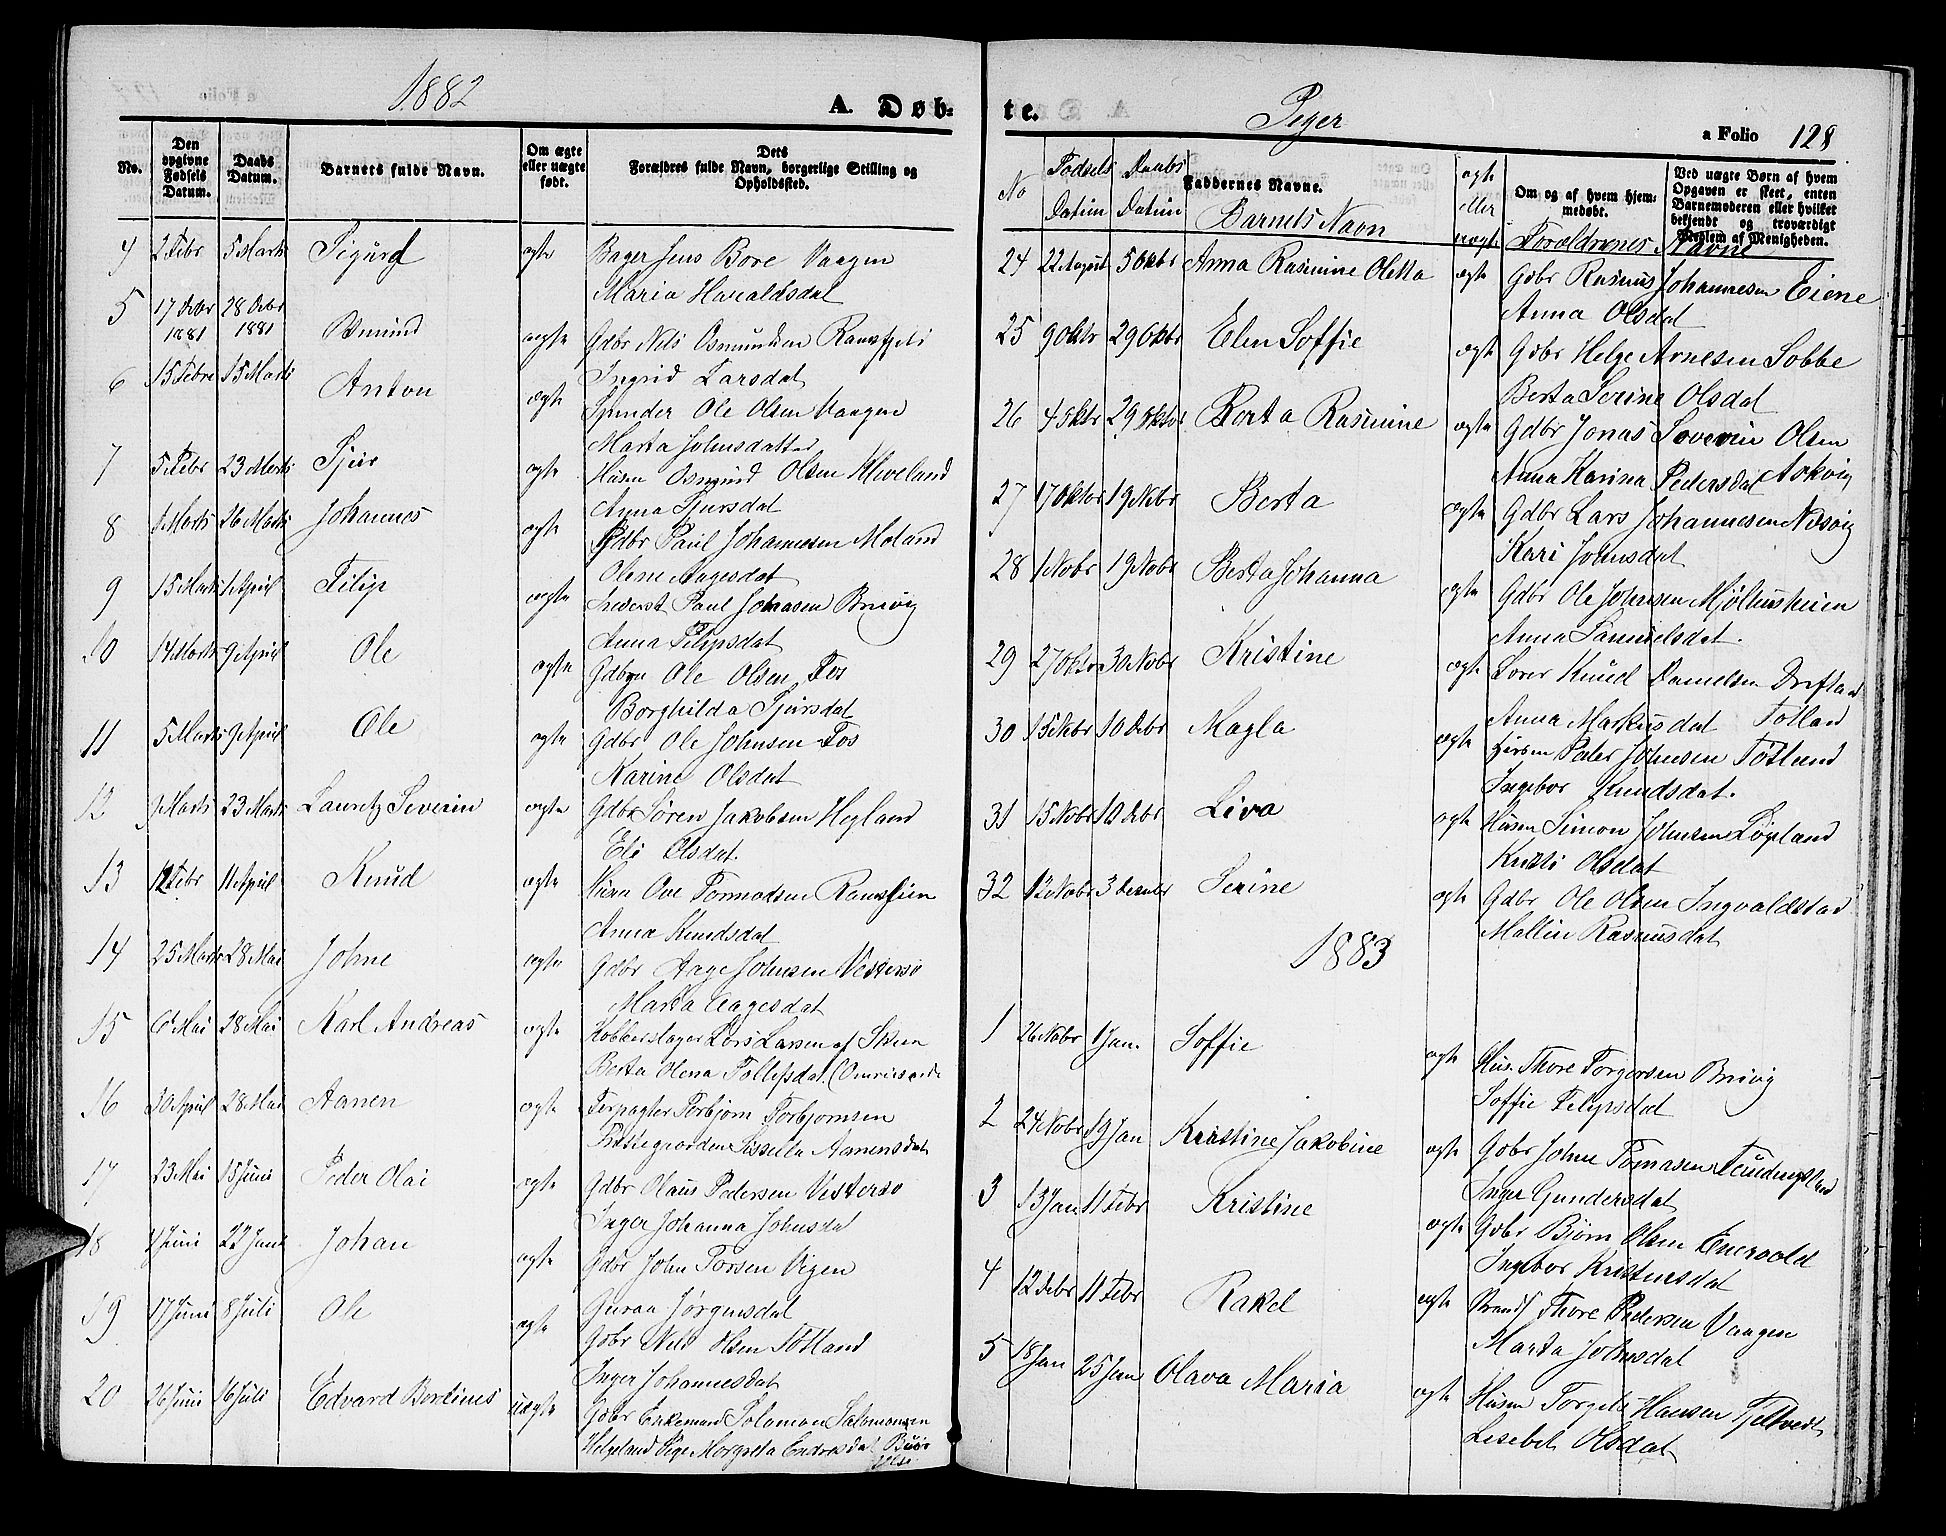 1882
A. Døb-
No.
Den opgivne Fødsels Datum.
Daabs Datum.
Barnets fulde Navn.
Om ægte eller uægte født.
Dets Forældres fulde Navn, borgerlige Stilling og Opholdssted.
4 2 Febr 5 Marts Sigurd ægte Bager Jens Bore Vaagen
Maria Haraldsdat
5 17 Decbr 1881 28 Decbr 1881 Osmund ægte Gdbr Nils Osmundsen
Ingrid Larsdat
6 15 Febr 15 Marts Anton ægte Ole Olsen Vaagen
Marta Johnsdatter
7 5 Febr 23 Marts Sjur ægte Husm Osmund Olsen Kliveland
Anna Sjursdat
8 Marts 26 Marts Johannes ægte Gdbr Paul Johannesen Moland
Olene Aagesdat
9 15 Marts 1 April Filip ægte Inderst Paul Johnasen
Anna Filipsdat
10 14 Marts 9 April Ole ægte Ole Olsen Fos
Borghilda Sjursdat
11 5 Marts 9 April Ole ægte Gdbr Ole Johnsen Fos
Karine Olsdat
12 Marts 23 Marts Lauretz Severin ægte Gdbr Søren Jakobsen Høyland
Eli Olsdat.
13 12 Febr 11 April Knud ægte Ove Tormodsen
Anna Knudsdat
14 25 Marts 28 Mai Johne ægte Gdbr Aage Johnsen Vestersø
Marta Aagesdat
15 Mai 28 Mai Karl Andreas ægte Kobberslager Lars Larsen af Skien
Berta Olena
16 30 April 28 Mai Aanen ægte Torbjørn Torbjørnsen
Prestegaarden Sissella Aanensdat
17 23 Mai 15 Juni Peder Olai ægte Gdbr Olaus Pedersen Vestersø
Inger Johanna Johnsdat
18 Juni 22 Juni Johan ægte Gdbr John Torsen Vigen
Guroa Jørgensdat
19 17 Juni 8 Juli Ole ægte Gdbr Nils Olsen Totland
Inger Johannesdat
20 26 Juni 16 Juli Edvard Bertinus uægte Gdbr Enkemand Solomon Salomonsen
Helgeland Pige Margreta Endresdat
te.
Piger
a Folio 128
No
Fødsels Datum
Daabs Datum
Faddernes Navne.
Barnets Navn
ægte eller uægte
Om og af hvem hjemmedøbt.
Forældrenes Navne
Ved uægte Børn af hvem Opgaven er skeet, enten Barnemoderen eller hvilket bekjendt og troværdigt Medlem af Menigheden.
24 22 August 5 Oktbr Anna Rasmine Oletta ægte Gdbr Rasmus Johannesen Eiene
Anna Olsdat
25 9 Oktr 29 Oktbr Elen Soffie ægte Gdbr Helge Arnesen Sobbe
Berta Serine Olsdat
26 4 Oktbr 29 Oktbr Berta Rasmine ægte Gdbr Jonas Severin Olsen
Anna Karina Pedersdat Askvig
27 17 Oktbr 19 Novbr Berta ægte Gdbr Lars Johannesen Nesvig
Kari Johnsdat
28 1 Novbr 19 Novbr Berta Johanna ægte Gdbr Ole Johnsen Mjølhusheien
Anna Samuelsdat.
29 27 Oktbr 30 Novbr Kristine ægte Knud Danielsen
Anna Markusdat Totland
30 15 Novbr 10 Debr Magla ægte Husm Peder Johnsen Totland
Ingebor Knudsdat.
31 15 Novbr 10 Debr Liva ægte Husm Simon Johnsen Løgeland
Kristi Olsdat
32 12 Novbr 3 Decmbr Serine ægte Gdbr Ole Olsen Ingvaldstad
Mallin Rasmusdat
1883
1 26 Novbr 1 Jan. Soffie ægte Hus. Thore Torgersen
Soffie Filipsdat
2 24 Novbr 19 Jan Kristine Jakobine ægte Gdbr Johne Tomasen Tendingsland
Inger Gundersdat
3 13 Jan 11 Febr Kristine ægte Gdbr Bjørn Olsen Enervold
Ingebor Kristensdat
4 12 Debr 11 Febr Rakel ægte Strands Thore Pedersen Vaagen
Marta Johnsdat
5 18 Jan 25 Jan Olava Maria ægte Husm Torgels Hansen Tjeltvedt
Lisebet Olsdat